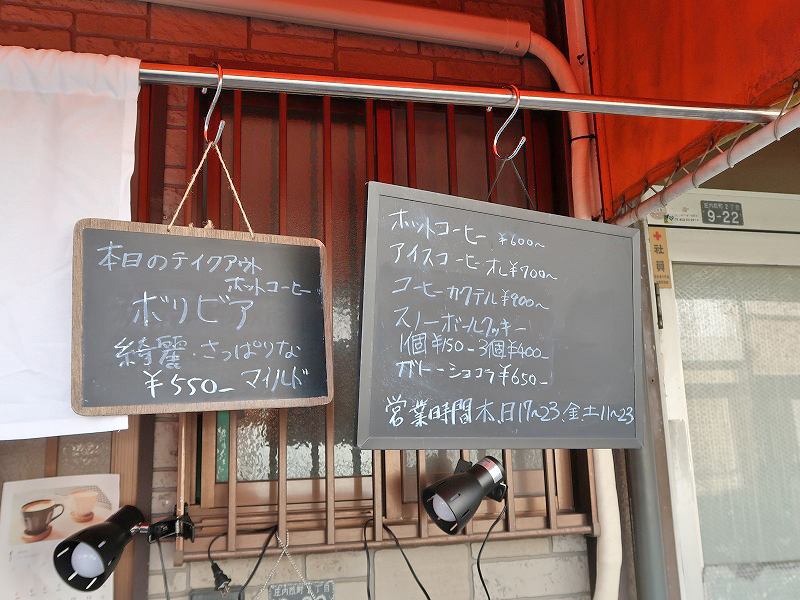 本日のテイクアウト
ホットコーヒー
ボリビア
綺麗・さっぱりな
¥550- マイルド
ホットコーヒー ¥600~
アイスコーヒーオレ¥700~
コーヒーカクテル¥900~
スノーボールクッキー
1個¥150- 3個¥400-
ガトーショコラ¥650-
営業時間 木,日17~23,金,土11~23
庄内西町2丁目
9-22
社員
庄内西町2丁目